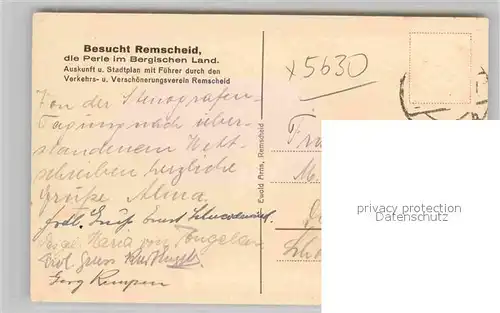 Besucht Remscheid,
die Perle im Bergischen Land.
Auskunft u. Stadtplan mit Führer durch den
Verkehrs- u. Verschönerungsverein Remscheid
x5630
Von der Stenografen-
Tagung nach über-
standenem Wett-
schreiben herzliche
Grüße Alma.
frdl. Gruß Ernst
Maria von
Viel Grüss Kurt
Georg Kempen
Ewald Arns, Remscheid
privacy protection
Datenschutz